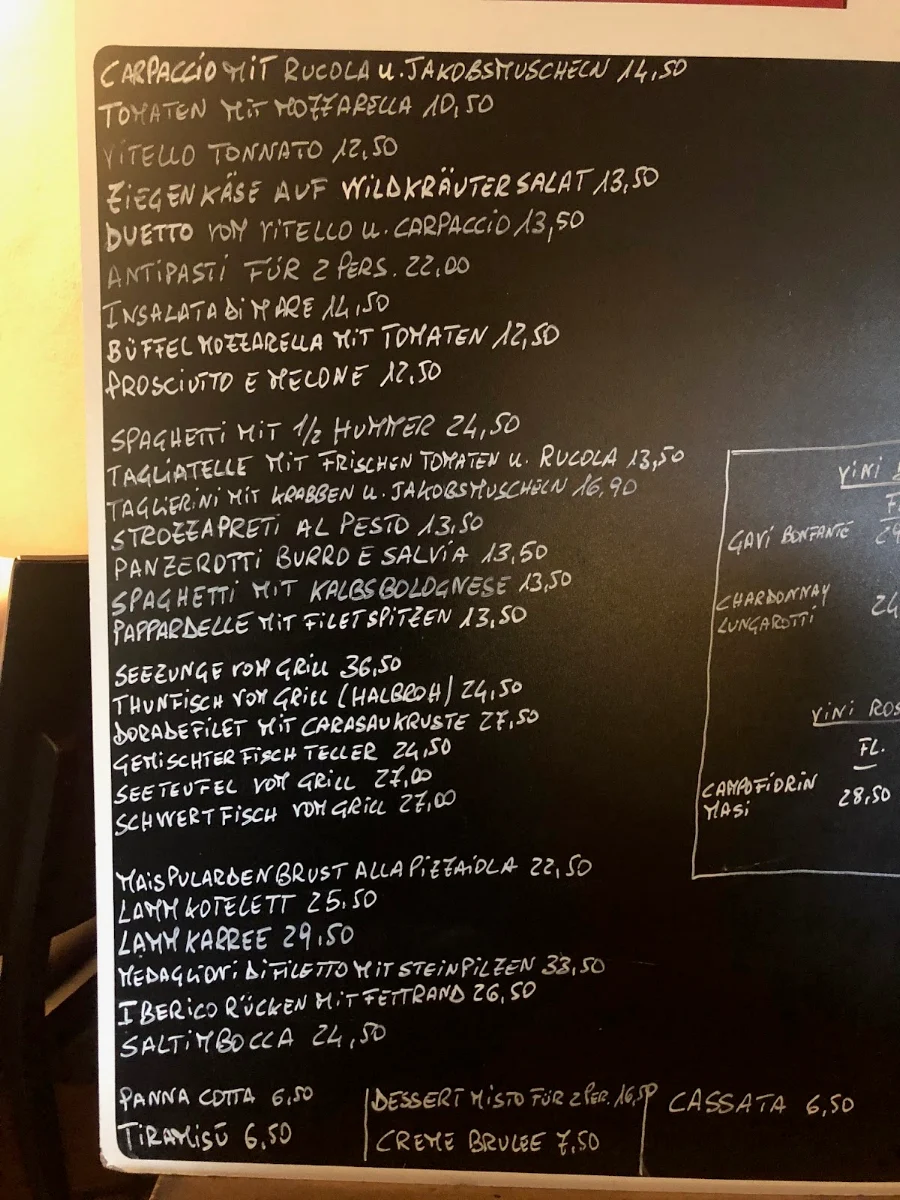 CARPACCIO MIT RUCOLA U. JAKOBSMUSCHELN 14,50
TOMATEN MIT MOZZARELLA 10,50
VITELLO TONNATO 12,50
ZIEGENKÄSE AUF WILDKRÄUTERSALAT 13,50
DUETTO VOM VITELLO U. CARPACCIO 13,50
ANTIPASTI FÜR 2 PERS. 22,00
INSALATA DI MARE 14,50
BÜFFELMOZZARELLA MIT TOMATEN 12,50
PROSCIUTTO E MELONE 12,50
SPAGHETTI MIT 1/2 HUMMER 24,50
TAGLIATELLE MIT FRISCHEN TOMATEN U. RUCOLA 13,50
TAGLIERINI MIT KRABBEN U. JAKOBSMUSCHELN 16,90
STROZZAPRETI AL PESTO 13,50
PANZEROTTI BURRO E SALVIA 13,50
SPAGHETTI MIT KALBSBOLOGNESE 13,50
PAPPARDELLE MIT FILETSPITZEN 13,50
SEEZUNGE VOM GRILL 36,50
THUNFISCH VOM GRILL (HALBROH) 24,50
DORADEFILET MIT CARASAUKRUSTE 27,50
GEMISCHTER FISCH TELLER 24,50
SEETEUFEL VOM GRILL 27,00
SCHWERTFISCH VOM GRILL 27,00
MAISPULARDENBRUST ALLA PIZZAIOLA 22,50
LAMMKOTELETT 25.50
LAMMKARREE 29,50
MEDAGLIONI DI FILETTO MIT STEINPILZEN 33,50
IBERICO RÜCKEN MIT FETTRAND 26,50
SALTIMBOCCA 24,50
PANNA COTTA 6,50
TIRAMISÙ 6,50
DESSERT MISTO FÜR 2 PER. 16,50
CREME BRULEE 7,50
CASSATA 6,50
VINI
GAVI BONFANTE
CHARDONNAY 24
LUNGAROTTI
VINI ROS
FL.
CAMPOFIORIN 28,50
MASI